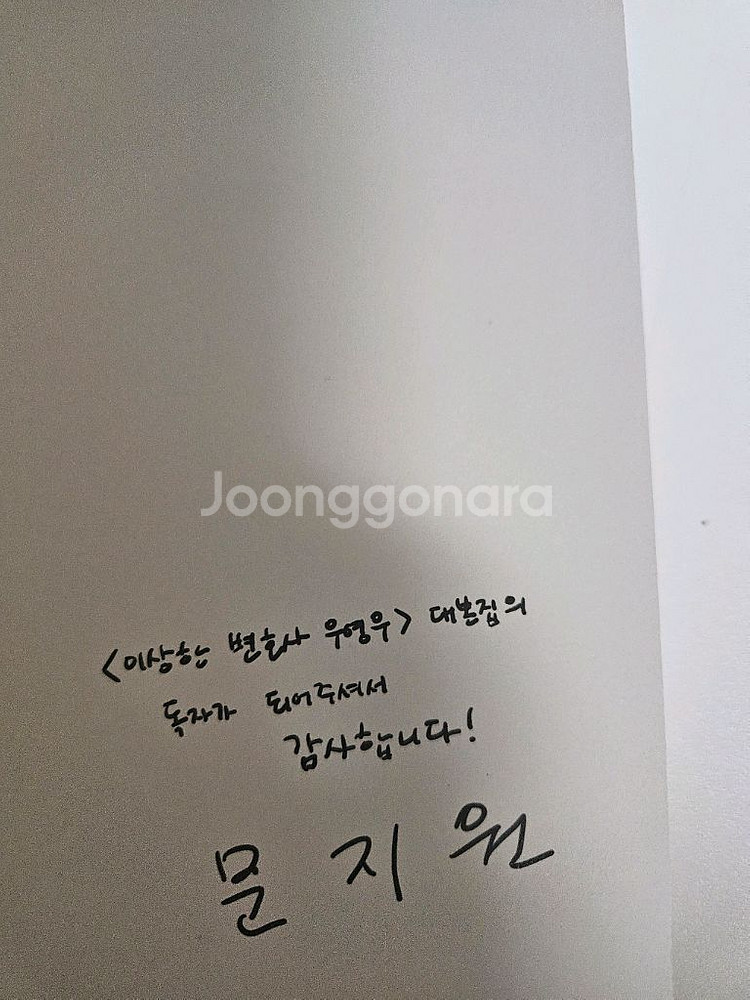 Joonggonara
<이상한 변호사 우영우> 대본집의
독자가 되어주셔서
감사합니다!
문지원